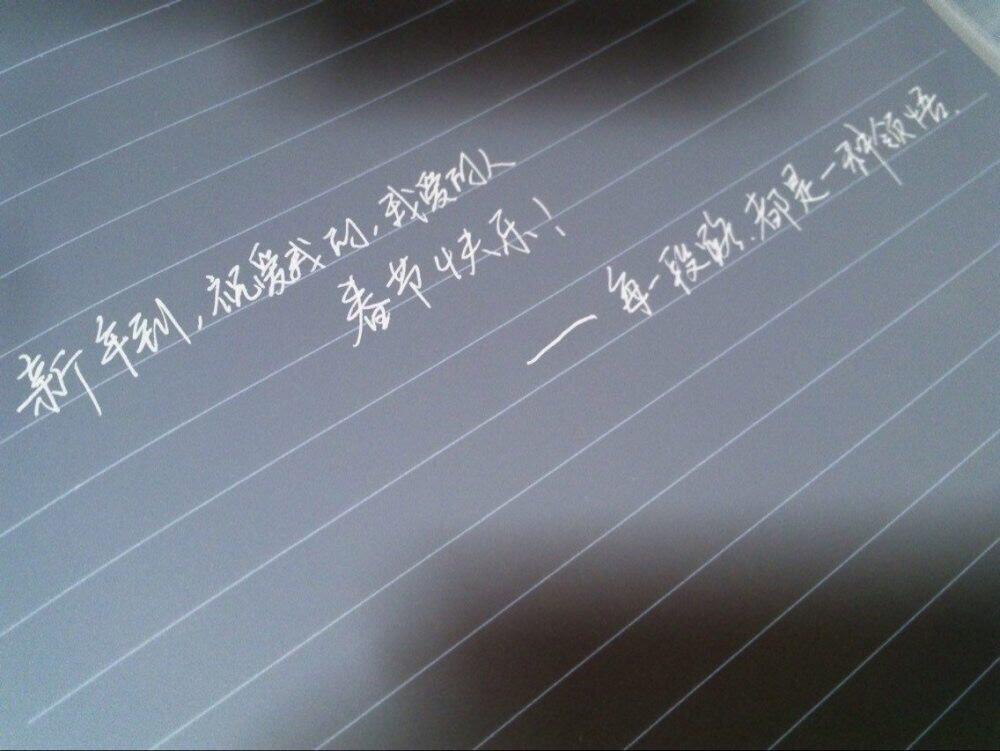 新年到，祝爱我的，我爱的人
春节快乐！
——每一段路.都是一种领悟.